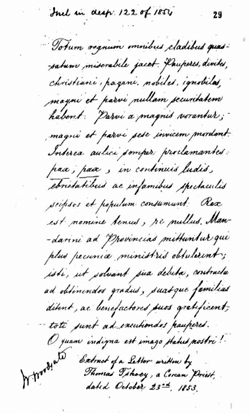 Incl in desp. 122 of 1854
29
Totum regnum omnibus cladibus quas-
satum miserabile jacet. Pauperes, divites,
christiani, pagani, nobiles, ignobiles,
magni et parvi nullam securitatem
habent. Parvi a magnis vorantur;
magni et parvi sese invicem mordent.
Interea aulici semper proclamantes
pax, pax, in continuis ludis,
ebrietatibus ac infamibus spectaculis
seipsos et populum consumunt. Rex
est nomine tenus, re nullus. Man-
darini ad Provincias mittuntur qui
plus pecuniæ ministris obtulerint;
isti, ut solvant sua debita, contracta
ad obtinendos gradus, suasque familias
ditent, ac benefactores suos gratificent,
toti sunt ad excutiendos pauperes.
O quam indigna est imago status nostri!
Extract of a Letter written by
Thomas Tshoey, a Corean Priest,
dated October 23rd, 1853.